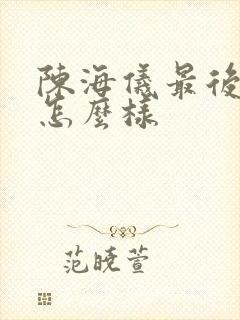 陳海儀最後
怎麼樣
范曉萱